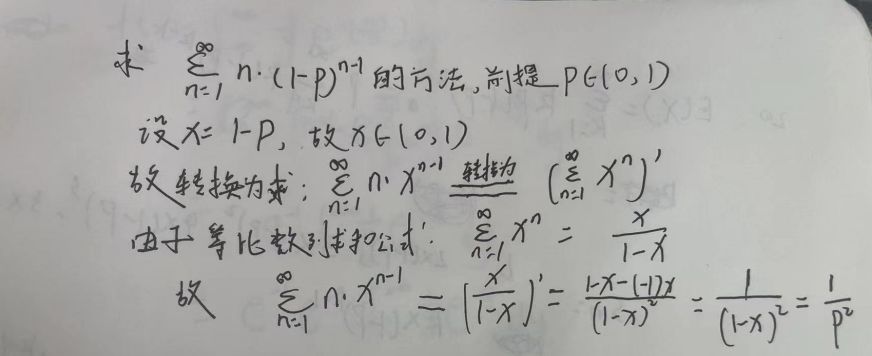 求 ∑_{n=1}^{∞} n·(1-P)^{n-1} 的方法,前提 P∈(0,1)
设 x=1-P, 故 x∈(0,1)
故转换为求: ∑_{n=1}^{∞} n·x^{n-1} 转换为 (∑_{n=1}^{∞} x^n)'
由于等比数列求和公式: ∑_{n=1}^{∞} x^n = x/(1-x)
故 ∑_{n=1}^{∞} n·x^{n-1} = (x/(1-x))' = (1-x-(-1)x)/(1-x)^2 = 1/(1-x)^2 = 1/P^2